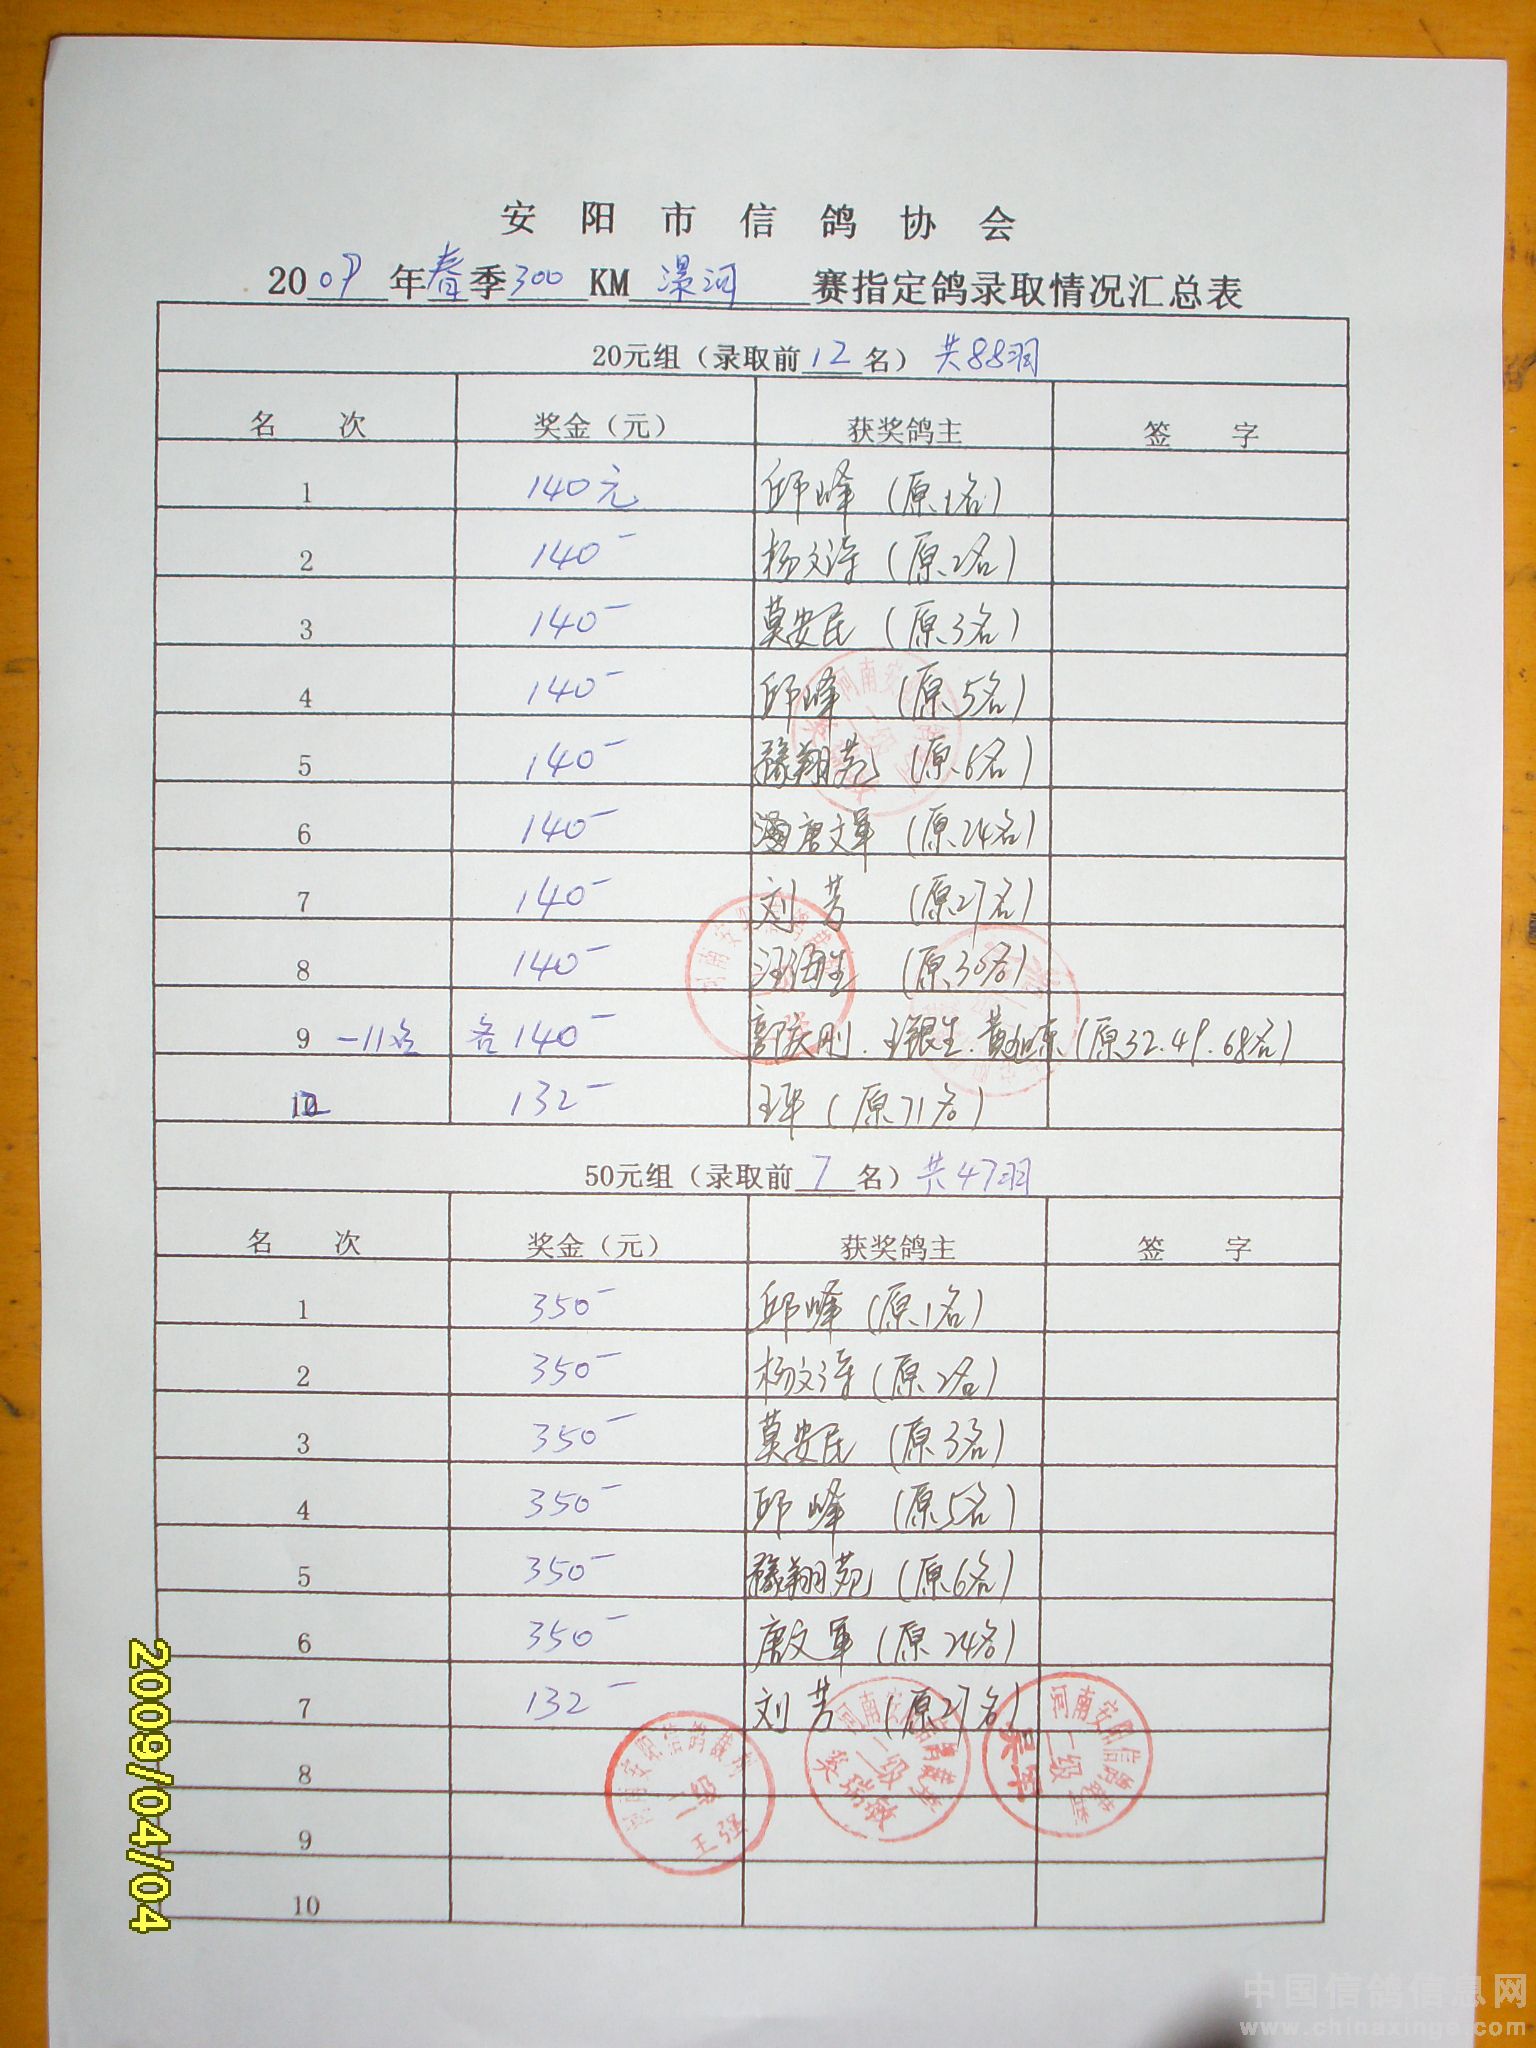 安阳市信鸽协会
2009年春季300KM漯河赛指定鸽录取情况汇总表
20元组（录取前12名）共88羽
名次 奖金（元） 获奖鸽主 签字
1 140元 邱峰（原1名）
2 140- 杨文涛（原2名）
3 140- 莫安民（原3名）
4 140- 邱峰（原5名）
5 140- 豫翔苑（原6名）
6 140- 唐文军（原24名）
7 140- 刘芳（原27名）
8 140- 汪海生（原30名）
9-11名 各140- 郭庆刚.王银生.黄旭东（原32.49.68名）
12 132- 王军（原71名）
50元组（录取前7名）共47羽
名次 奖金（元） 获奖鸽主 签字
1 350- 邱峰（原1名）
2 350- 杨文涛（原2名）
3 350- 莫安民（原3名）
4 350- 邱峰（原5名）
5 350- 豫翔苑（原6名）
6 350- 唐文军（原24名）
7 132- 刘芳（原27名）
8
9
10
河南安阳信鸽裁判
二级
王强
河南安阳信鸽裁判
二级
吴瑞敏
河南安阳信鸽裁判
二级
2009/04/04
中国信鸽信息网
www.chinaxinge.com